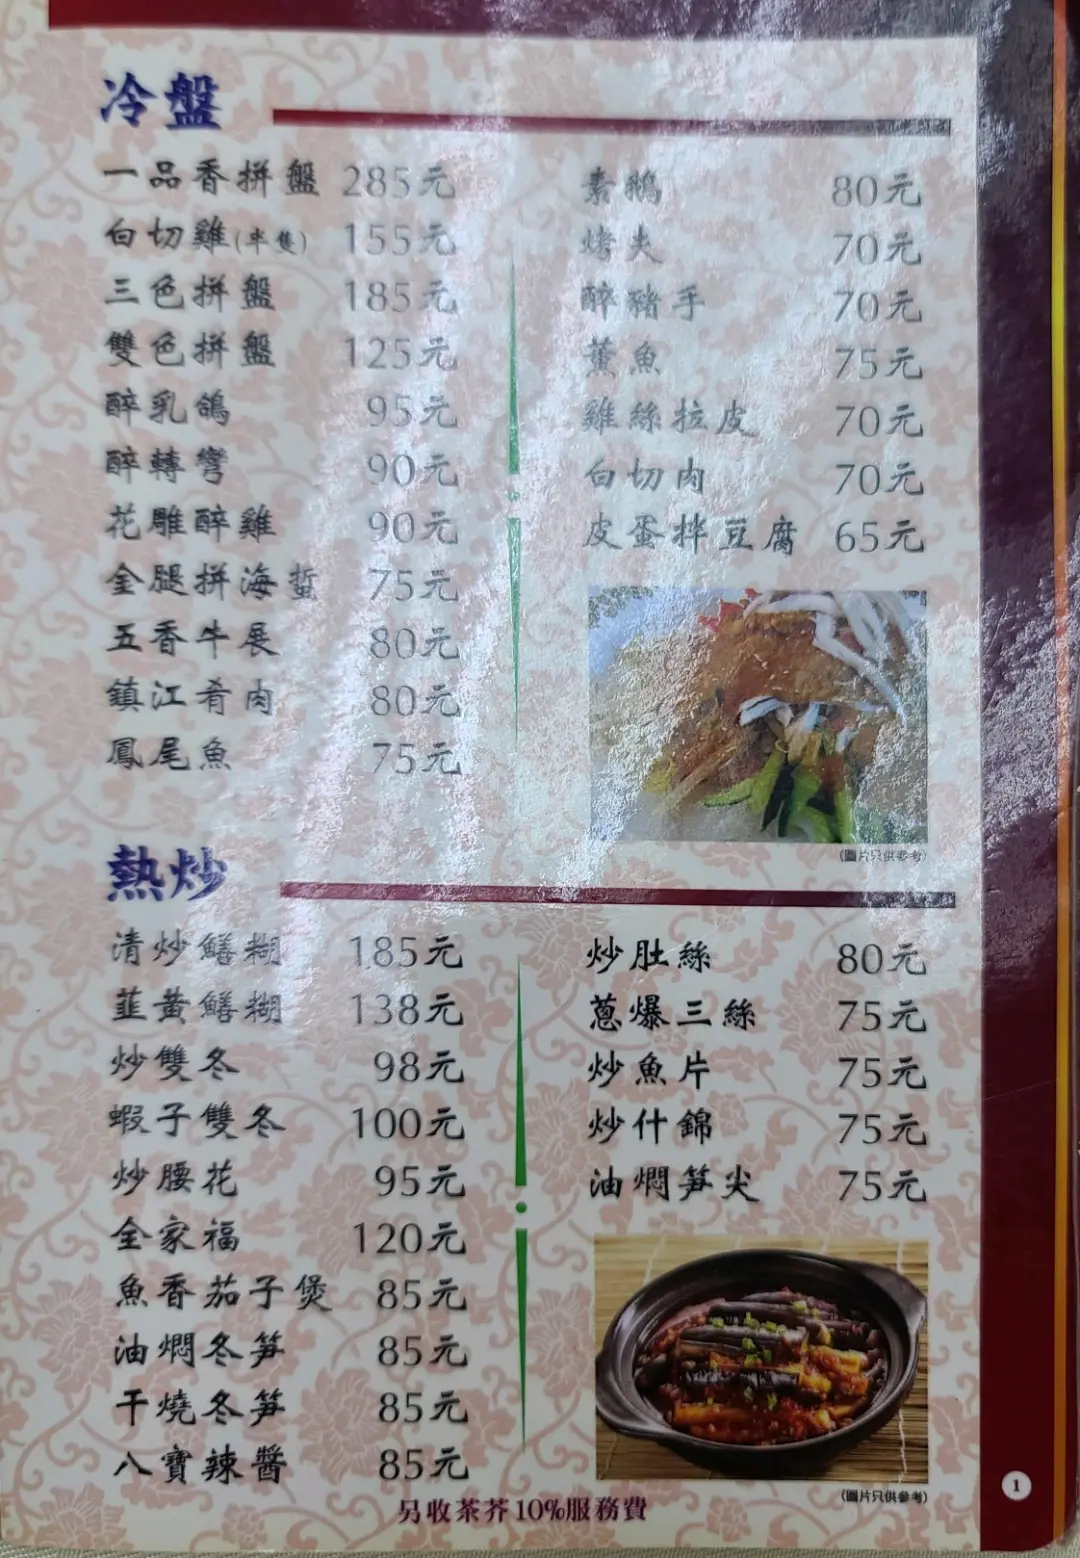 冷盤
一品香拼盤 285元
白切雞(半隻) 155元
三色拼盤 185元
雙色拼盤 125元
醉乳鴿 95元
醉轉彎 90元
花雕醉雞 90元
金腿拼海蜇 75元
五香牛展 80元
鎮江肴肉 80元
鳳尾魚 75元
素鵝 80元
烤夫 70元
醉豬手 70元
薰魚 75元
雞絲拉皮 70元
白切肉 70元
皮蛋拌豆腐 65元
(圖片只供參考)
熱炒
清炒鱔糊 185元
韮黃鱔糊 138元
炒雙冬 98元
蝦子雙冬 100元
炒腰花 95元
全家福 120元
魚香茄子煲 85元
油燜冬筍 85元
干燒冬筍 85元
八寶辣醬 85元
炒肚絲 80元
蔥爆三絲 75元
炒魚片 75元
炒什錦 75元
油燜筍尖 75元
(圖片只供參考)
另收茶芥10%服務費
1